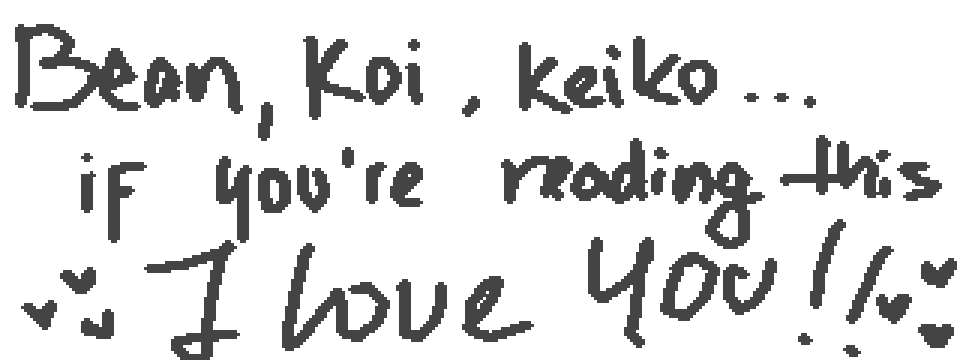 Bean, Koi, Keiko...
if you're reading this
I love you!!